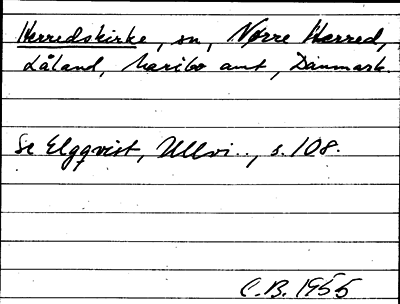 Herredskirke, sn, Nørre Herred,
Låland, Maribo amt, Danmark.
Se Elgqvist, Ullvi.., s. 108.
C.B. 1955